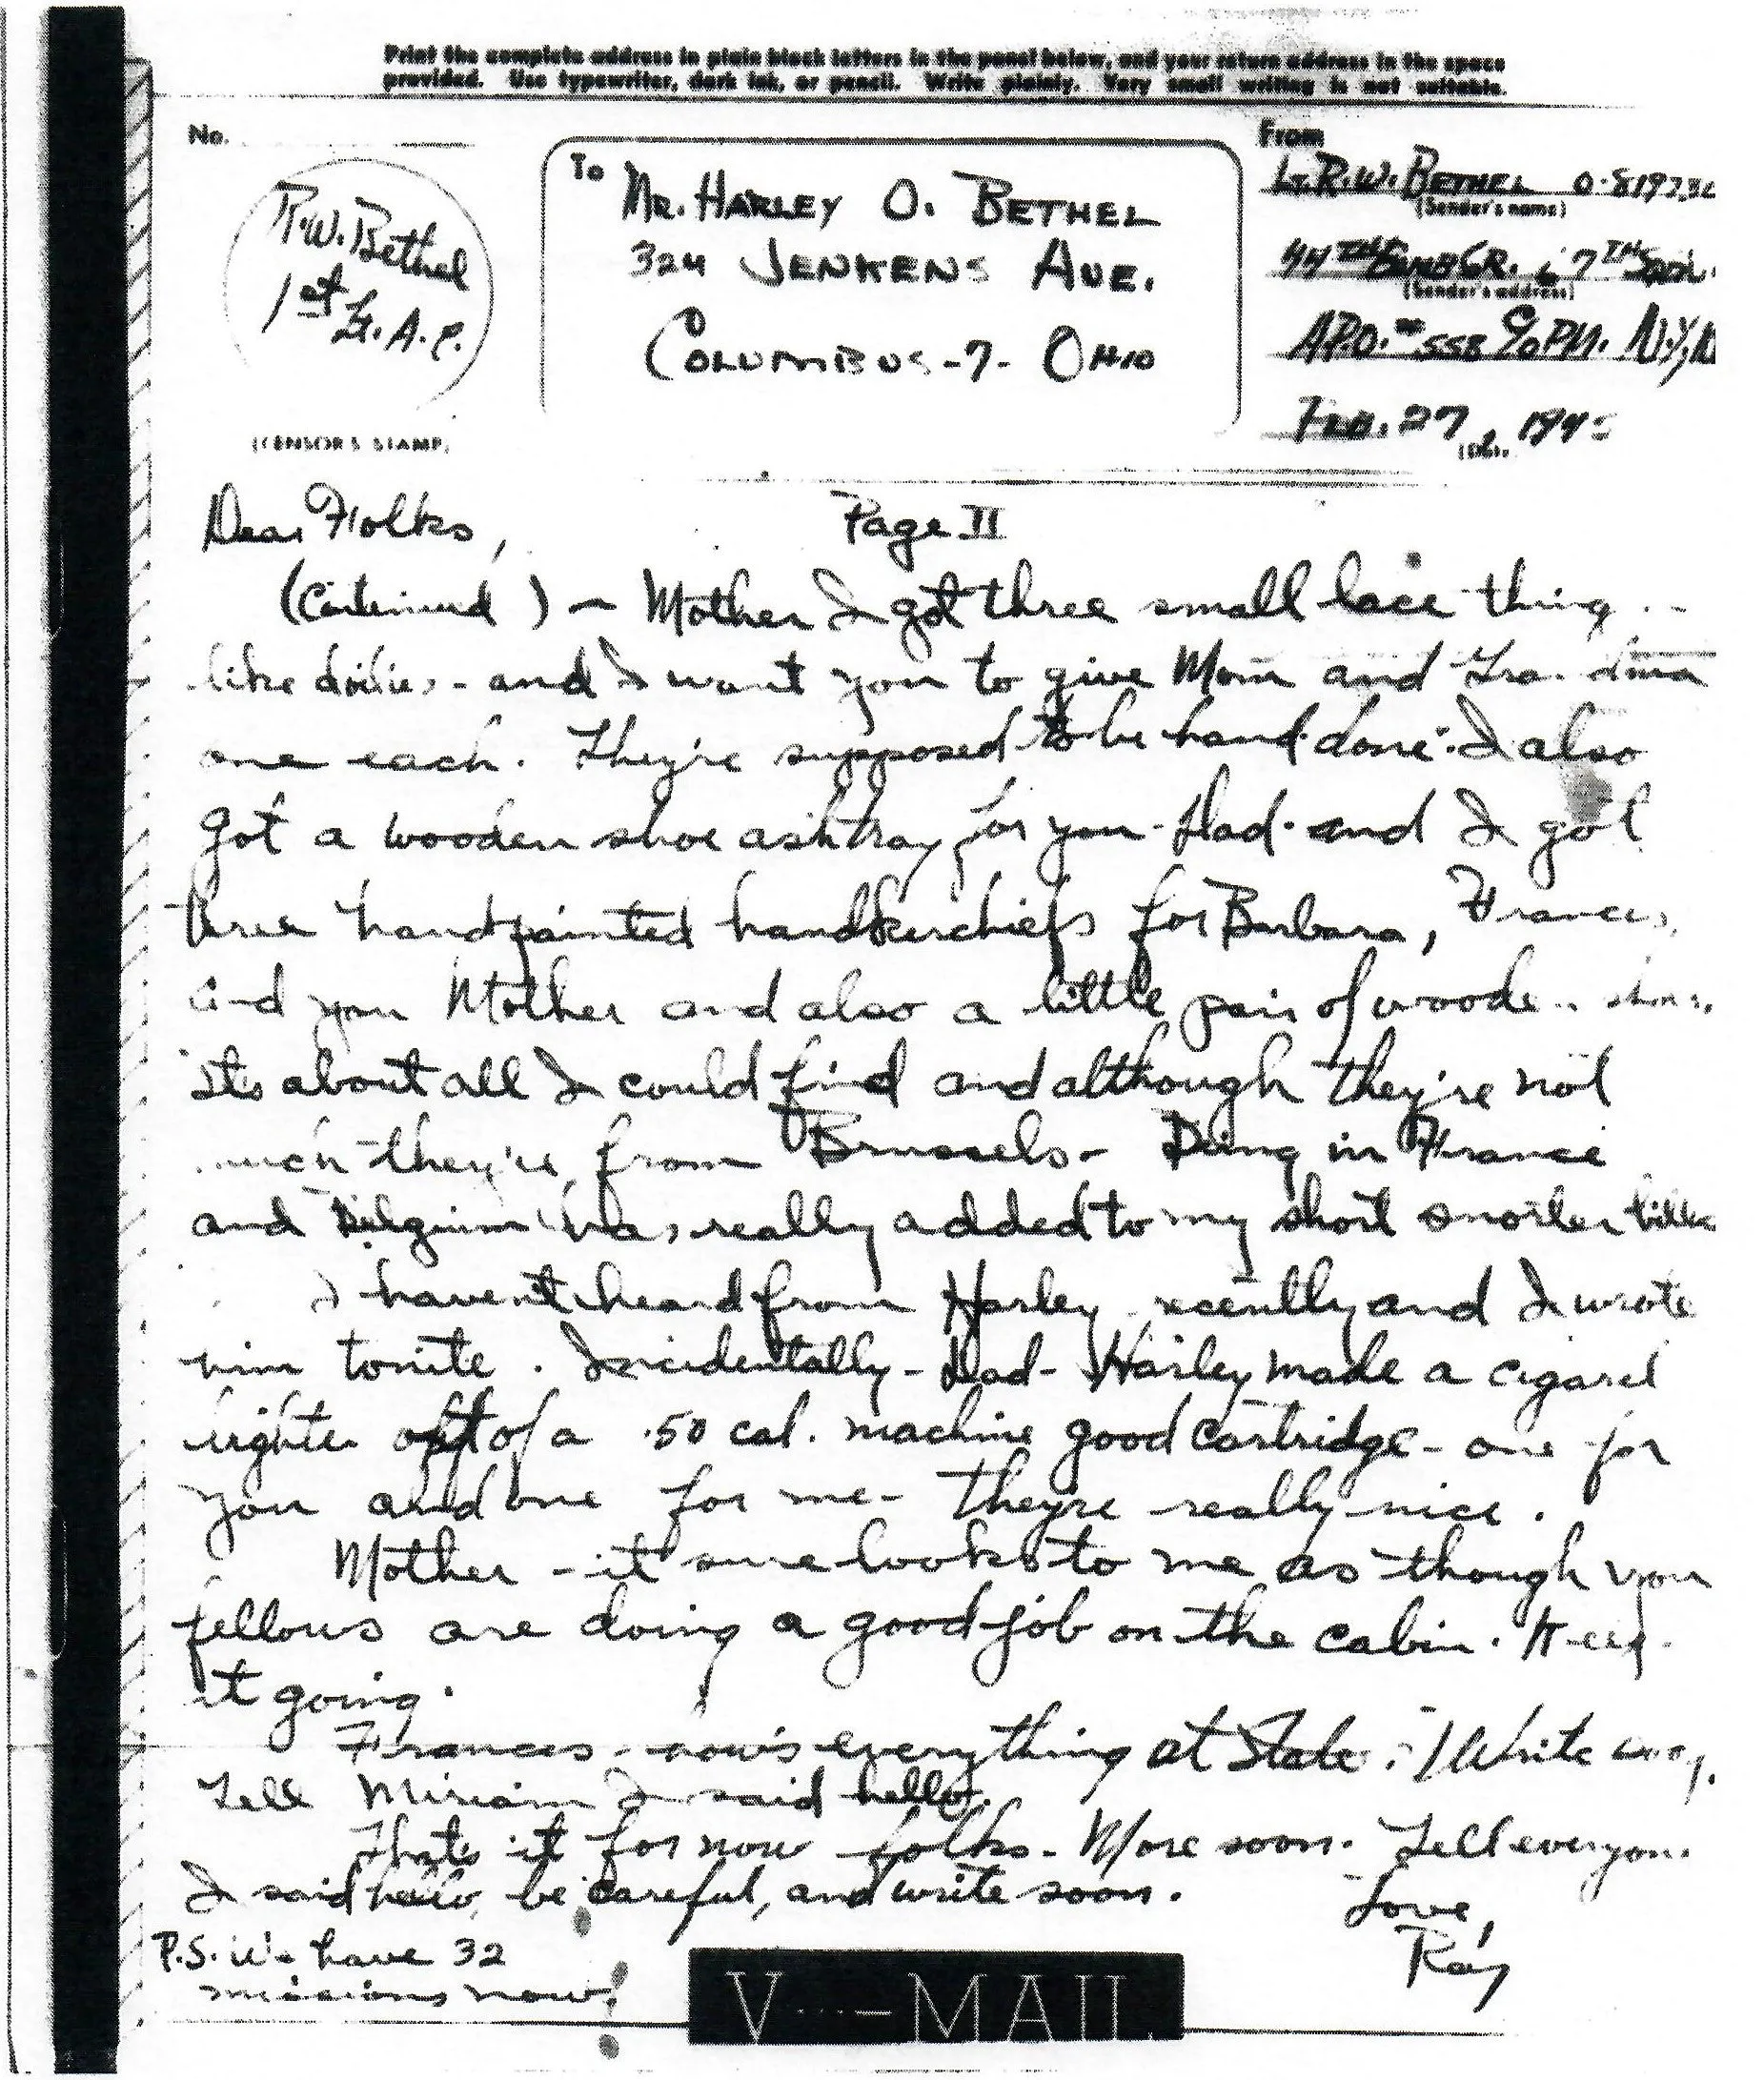 Print the complete address in plain block letters in the panel below, and your return address in the space
provided. Use typewriter, dark ink, or pencil. Write plainly. Very small writing is not suitable.
No.
From
To
R.W. Bethel
1st Lt. A.C.
(CENSOR'S STAMP)
MR. HARLEY O. BETHEL
324 JENKENS AVE.
COLUMBUS-7-OHIO
LT. R.W. BETHEL
(Sender's name)
44TH BOMB GR. 67TH
(Sender's address)
A.P.O. #558 C/O PM. N.Y.,
FEB. 27
Dear Folks, Page II
(Continued) - Mother I got three small lace
like doilies - and I want you to give Mom and
one each. They're supposed to be hand done. I also
got a wooden shoe ashtray for you - Dad - and I got
three handpainted handkerchiefs for Barbara, Frances,
and you Mother and also a little pair of
its about all I could find and although they're not
much they're from Brussels - Being in France
and Belgium has really added to my short snorter
I haven't heard from Harley recently and I wrote
him tonite. Incidentally - Dad - Harley made a cigaret
lighter out of a .50 cal. machine good cartridge - one for
you and one for me - they're really nice.
Mother - it sure looks to me as though you
fellows are doing a good job on the cabin. Keep
it going.
Frances - how's everything at State. Write
Tell Miriam I said hello.
Thats it for now folks - More soon. Tell everyone
I said hello, be careful, and write soon.
Love,
Ray
P.S. We have 32
missions now!
V···—MAIL